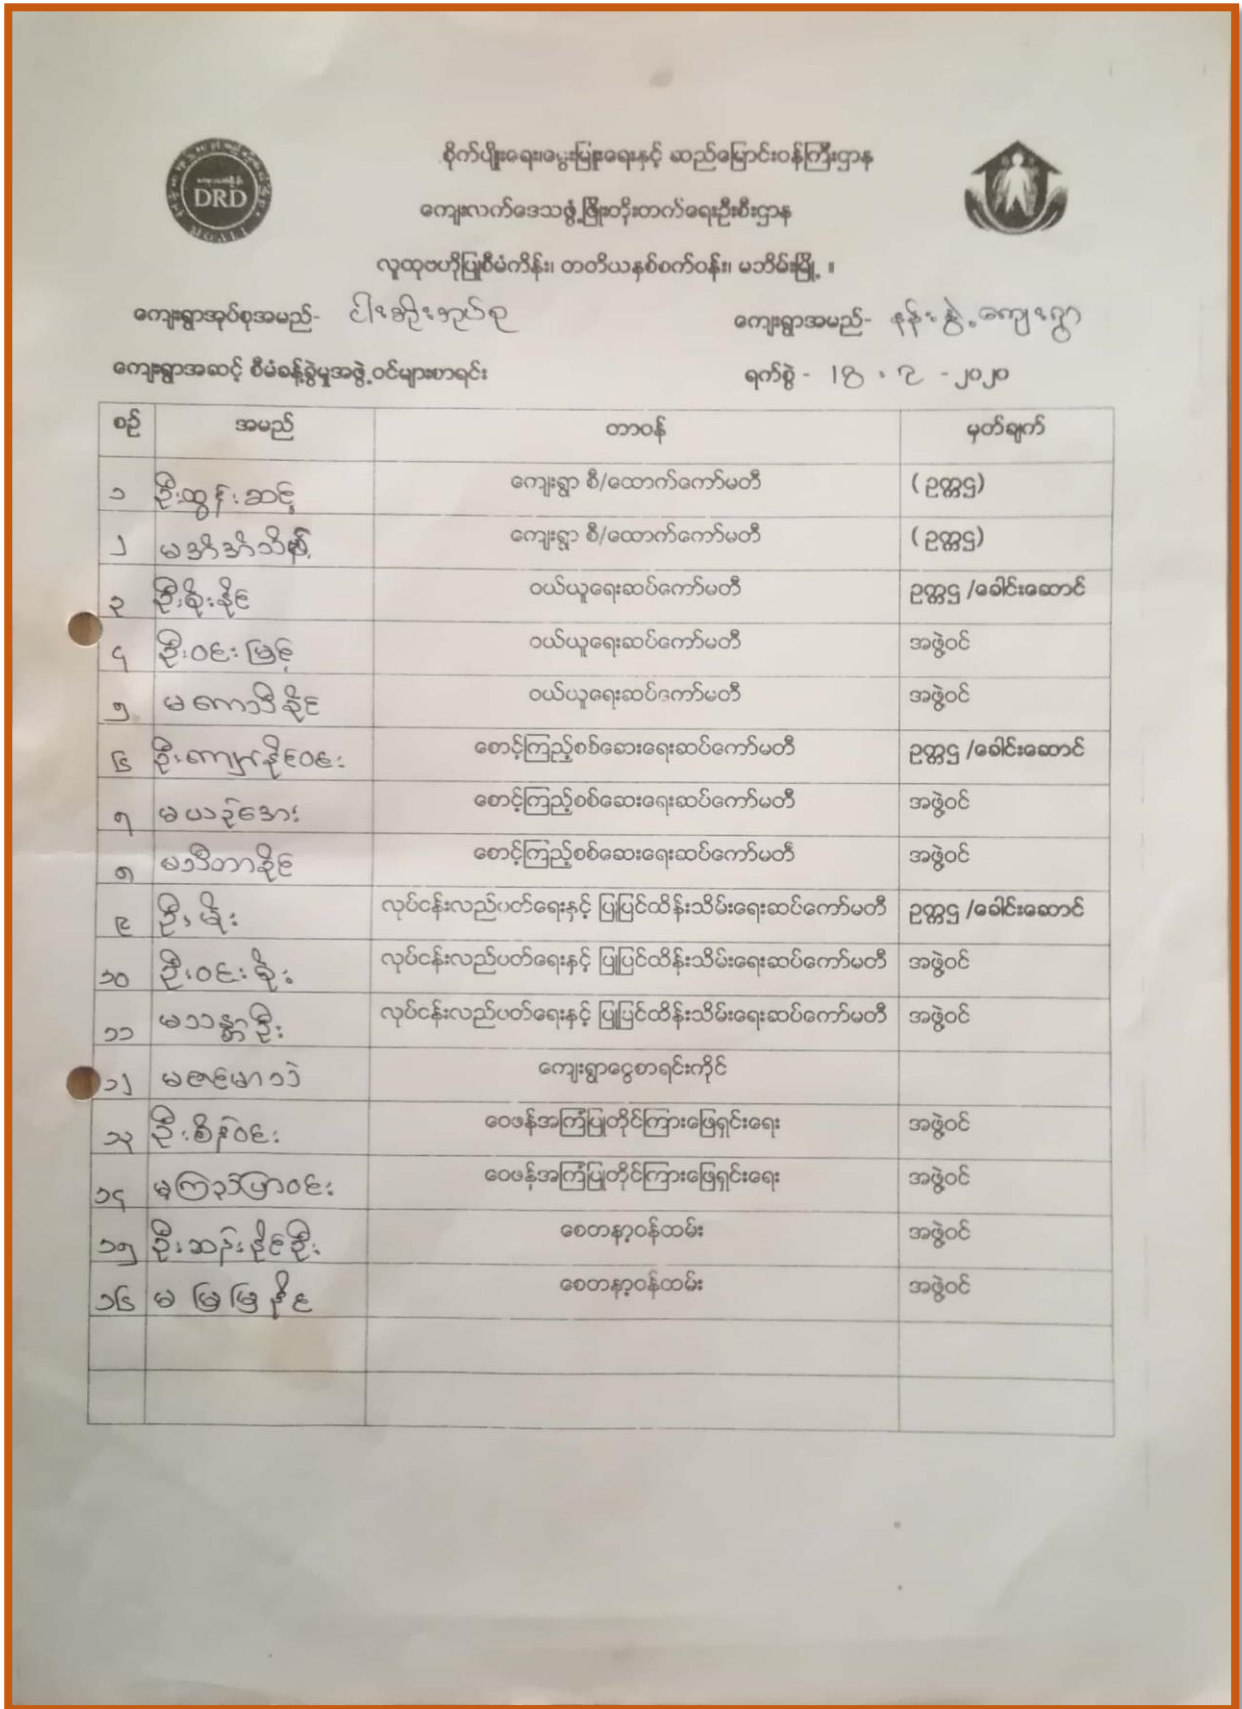 စိုက်ပျိုးရေး၊မွေးမြူရေးနှင့် ဆည်မြောင်းဝန်ကြီးဌာန
DRD
ကျေးလက်ဒေသဖွံ့ဖြိုးတိုးတက်ရေးဦးစီးဌာန
MOALI
လူထုဗဟိုပြုစီမံကိန်း၊ တတိယနှစ်စက်ဝန်း၊ မဘိမ်းမြို့ ။
ကျေးရွာအုပ်စုအမည်- ငါးအိုးအုပ်စု ကျေးရွာအမည်- နန်းနွဲ့ကျေးရွာ
ကျေးရွာအဆင့် စီမံခန့်ခွဲမှုအဖွဲ့ဝင်များစာရင်း ရက်စွဲ - -၂၀၂၀
စဉ် အမည် တာဝန် မှတ်ချက်
၁ ဦးထွန်းဆင့် ကျေးရွာ စီ/ထောက်ကော်မတီ (ဥက္ကဌ)
၂ မအိအိသိန့် ကျေးရွာ စီ/ထောက်ကော်မတီ (ဥက္ကဌ)
၃ ဦးစိုးနိုင် ဝယ်ယူရေးဆပ်ကော်မတီ ဥက္ကဌ /ခေါင်းဆောင်
၄ ဦးဝင်းမြင့် ဝယ်ယူရေးဆပ်ကော်မတီ အဖွဲ့ဝင်
၅ မကေသီခိုင် ဝယ်ယူရေးဆပ်ကော်မတီ အဖွဲ့ဝင်
၆ ဦးကျော်နိုင်ဝင်း စောင့်ကြည့်စစ်ဆေးရေးဆပ်ကော်မတီ ဥက္ကဌ /ခေါင်းဆောင်
၇ မယဉ်အေး စောင့်ကြည့်စစ်ဆေးရေးဆပ်ကော်မတီ အဖွဲ့ဝင်
၈ မသီတာခိုင် စောင့်ကြည့်စစ်ဆေးရေးဆပ်ကော်မတီ အဖွဲ့ဝင်
၉ ဦးမိုး လုပ်ငန်းလည်ပတ်ရေးနှင့် ပြုပြင်ထိန်းသိမ်းရေးဆပ်ကော်မတီ ဥက္ကဌ /ခေါင်းဆောင်
၁၀ ဦးဝင်းစိုး လုပ်ငန်းလည်ပတ်ရေးနှင့် ပြုပြင်ထိန်းသိမ်းရေးဆပ်ကော်မတီ အဖွဲ့ဝင်
၁၁ မသန္တာဦး လုပ်ငန်းလည်ပတ်ရေးနှင့် ပြုပြင်ထိန်းသိမ်းရေးဆပ်ကော်မတီ အဖွဲ့ဝင်
၁၂ မဇင်မာသဲ ကျေးရွာငွေစာရင်းကိုင်
၁၃ ဦးစိန်ဝင်း ဝေဖန်အကြံပြုတိုင်ကြားဖြေရှင်းရေး အဖွဲ့ဝင်
၁၄ မကြည်ပြာဝင်း ဝေဖန်အကြံပြုတိုင်ကြားဖြေရှင်းရေး အဖွဲ့ဝင်
၁၅ ဦးဆန်းနိုင်ဦး စေတနာ့ဝန်ထမ်း အဖွဲ့ဝင်
၁၆ မမြမြနိုင် စေတနာ့ဝန်ထမ်း အဖွဲ့ဝင်